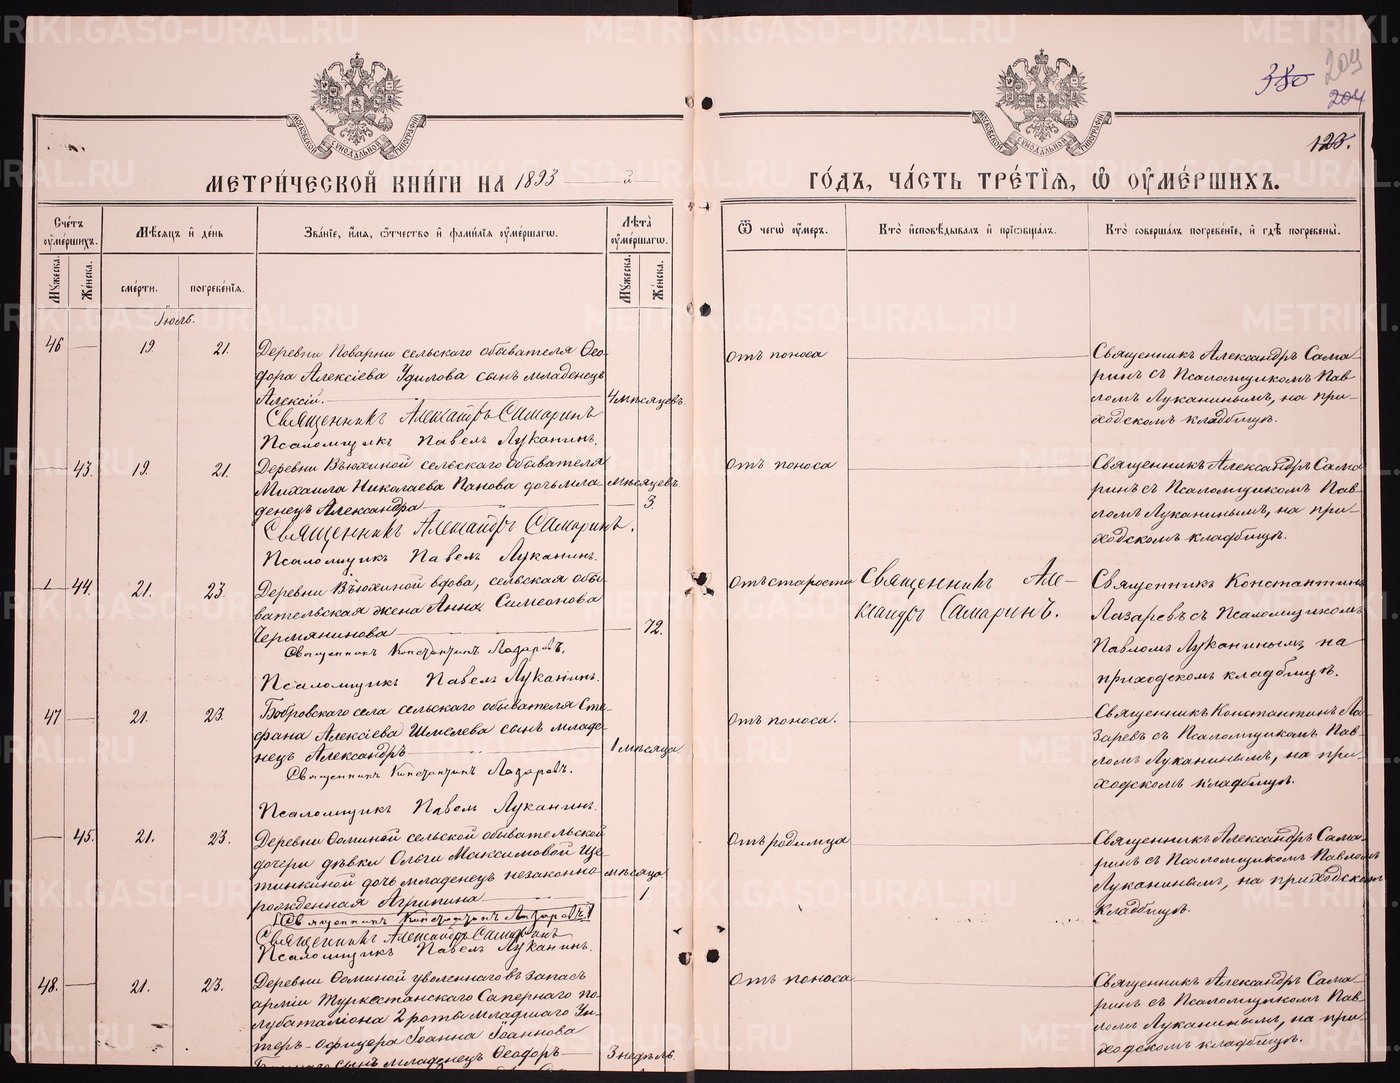 METRIKI.GASO-URAL.RU
МОСКОВСКОЙ СѴНОДАЛЬНОЙ ТИПОГРАФІИ
МОСКОВСКОЙ СѴНОДАЛЬНОЙ ТИПОГРАФІИ
380
209
204
120.
МЕТРИЧЕСКОЙ КНИГИ НА 1893 й
ГОДЪ, ЧАСТЬ ТРЕТІЯ, Ѽ ОУМЕРШИХЪ.
Счетъ оумершихъ.
Мѣсяцъ и день
Званіе, имя, ѿчество и фамилія оумершагѡ.
Лѣта оумершагѡ.
Ѿ чегѡ оумеръ.
Кто исповѣдывалъ и пріобщалъ.
Кто совершалъ погребеніе, и гдѣ погребены.
Мужеска.
Женска.
смерти.
погребенія.
Мужеска.
Женска.
Іюль.
46 — 19. 21.
Деревни Поварни сельскаго обывателя Ѳео-
дора Алексіева Удилова сынъ младенецъ
Алексій. — 4 мѣсяцевъ
Священникъ Александръ Самаринъ
Псаломщикъ Павелъ Луканинъ.
отъ поноса
Священникъ Александръ Сама-
ринъ съ Псаломщикомъ Пав-
ломъ Луканинымъ, на при-
ходскомъ кладбищѣ.
— 43. 19. 21.
Деревни Вьюхиной сельскаго обывателя
Михаила Николаева Панова дочь мла-
денецъ Александра
мѣсяцевъ
3.
Священникъ Александръ Самаринъ.
Псаломщикъ Павелъ Луканинъ.
отъ поноса
Священникъ Александръ Сама-
ринъ съ Псаломщикомъ Пав-
ломъ Луканинымъ, на при-
ходскомъ кладбищѣ.
— 44. 21. 23.
Деревни Вьюхиной вдова, сельская обы-
вательская жена Анна Симеонова
Чермянинова — 72.
Священникъ Константинъ Лазаревъ.
Псаломщикъ Павелъ Луканинъ.
отъ старости
Священникъ Але-
ксандръ Самаринъ.
Священникъ Константинъ
Лазаревъ съ Псаломщикомъ
Павломъ Луканинымъ, на
приходскомъ кладбищѣ.
47 — 21. 23.
Бобровскаго села сельскаго обывателя Сте-
фана Алексіева Шмелева сынъ младе-
нецъ Александръ — 1 мѣсяца
Священникъ Константинъ Лазаревъ.
Псаломщикъ Павелъ Луканинъ.
отъ поноса.
Священникъ Константинъ Ла-
заревъ съ Псаломщикомъ Пав-
ломъ Луканинымъ, на при-
ходскомъ кладбищѣ.
— 45. 21. 23.
Деревни Ѳоминой сельской обывательской
дочери дѣвки Ольги Максимовой Ще-
тинкиной дочь младенецъ незаконно-
рожденная Агрипина
мѣсяца
1.
Священникъ Константинъ Лазаревъ
Священникъ Александръ Самаринъ
Псаломщикъ Павелъ Луканинъ.
отъ родимца
Священникъ Александръ Сама-
ринъ съ Псаломщикомъ Павломъ
Луканинымъ, на приходскомъ
кладбищѣ.
48. — 21. 23.
Деревни Ѳоминой уволеннаго въ запасъ
арміи Туркестанскаго Сапернаго по-
лубаталіона 2 роты младшаго Ун-
теръ-офицера Іоанна Іоаннова
сынъ младенецъ Ѳеодоръ — 3 недѣль
отъ поноса
Священникъ Александръ Сама-
ринъ съ Псаломщикомъ Пав-
ломъ Луканинымъ, на при-
ходскомъ кладбищѣ.